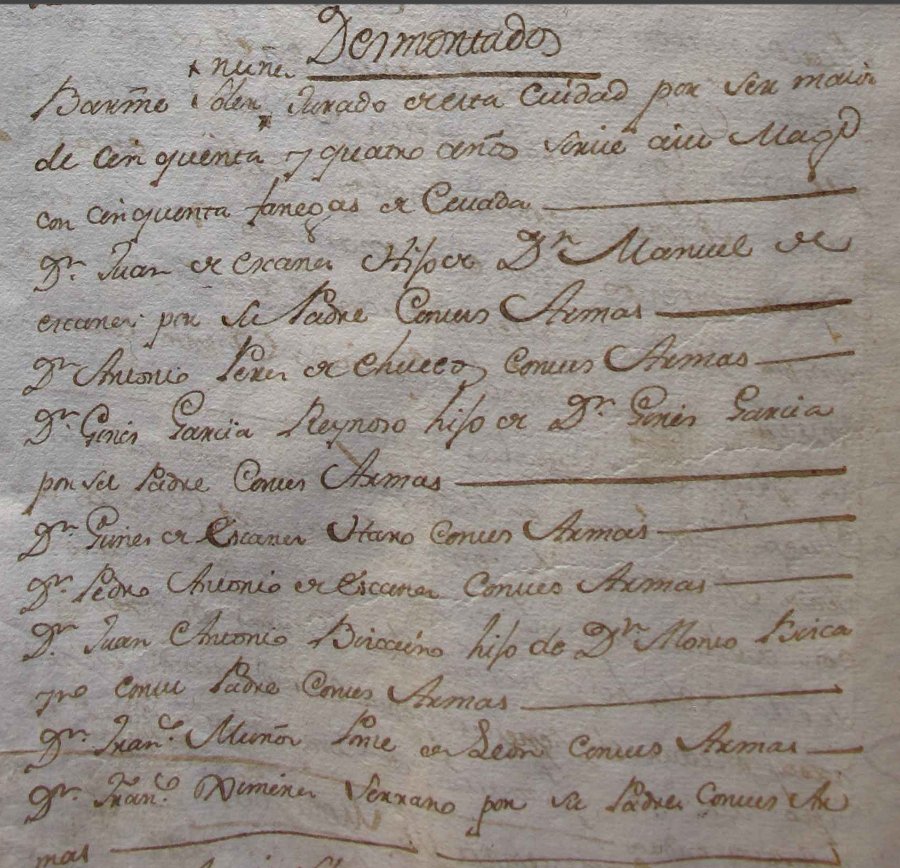 Desmontados
x nuñez
Barme Soler x Jurado de esta Ciudad por ser maior
de cinquenta y quatro años sirue a su Magd
con cinquenta fanegas de Ceuada
Dn Juan de escaner Hijo de Dn Manuel de
escaner por su Padre Consus Armas
Dn Antonio Peres de Chuecos Consus Armas
Dn Gines Garcia Reynoso hijo de Dn Gines Garcia
por su Padre Consus Armas
Dn Gines de Escaner Haro Consus Armas
Dn Pedro Antonio de Escaner Consus Armas
Dn Juan Antonio hijo de Dn
Padre Consus Armas
Dn Franco. Muños Ponce de Leon Consus Armas
Dn Franco. Ximenes Serrano por su Padre Consus Ar
mas